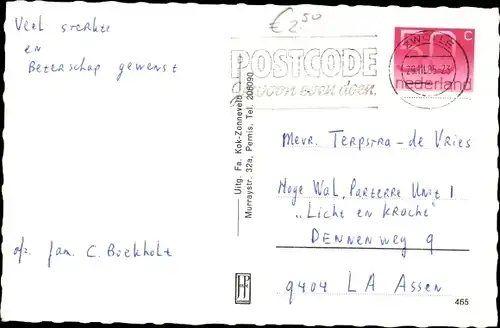 Veel sterkte
en
Beterschap gewenst
afz. fam. C. Boekholt
€ 2.50
POSTCODE
gewoon even doen.
ZWOLLE
29.III.85-23
50 C
nederland
Uitg. Fa. Kok-Zonneveld
Murraystr. 32a, Pernis, Tel. 206090
Mevr. Terpstra-de Vries
Hoge Wal, Parterre Unit 1
„Licht en Kracht"
Dennenweg 9
9404 LA Assen
465